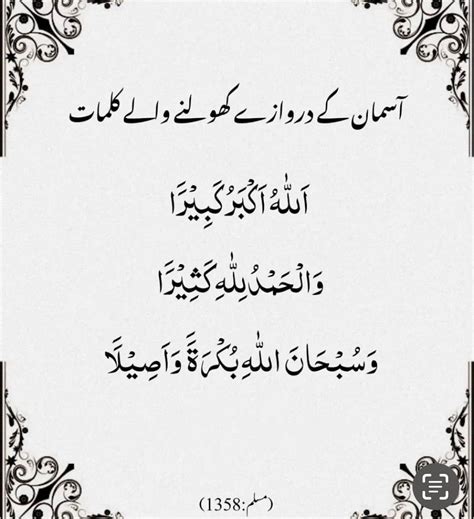 آسمان کے دروازے کھولنے والے کلمات
اَللّٰهُ اَكْبَرُ كَبِيْرًا
وَالْحَمْدُ لِلّٰهِ كَثِيْرًا
وَسُبْحَانَ اللّٰهِ بُكْرَةً وَاَصِيْلًا
(مسلم:1358)